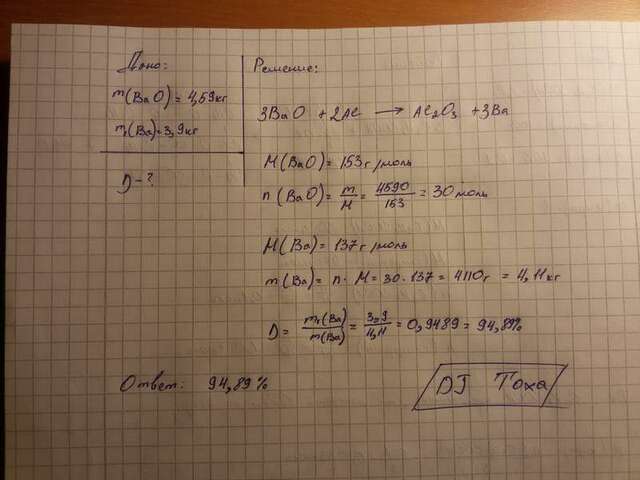 Дано:
m(BaO) = 4,59кг
m₁(Ba)=3,9кг
D-?
Решение:
3BaO + 2Al → Al₂O₃ + 3Ba
M(BaO) = 153г/моль
n(BaO) = m/M = 4590/153 = 30 моль
M(Ba) = 137г/моль
m(Ba) = n · M = 30 · 137 = 4110г = 4,11кг
D = m₁(Ba)/m(Ba) = 3,9/4,11 = 0,9489 = 94,89%
Ответ: 94,89%
DJ Тоха